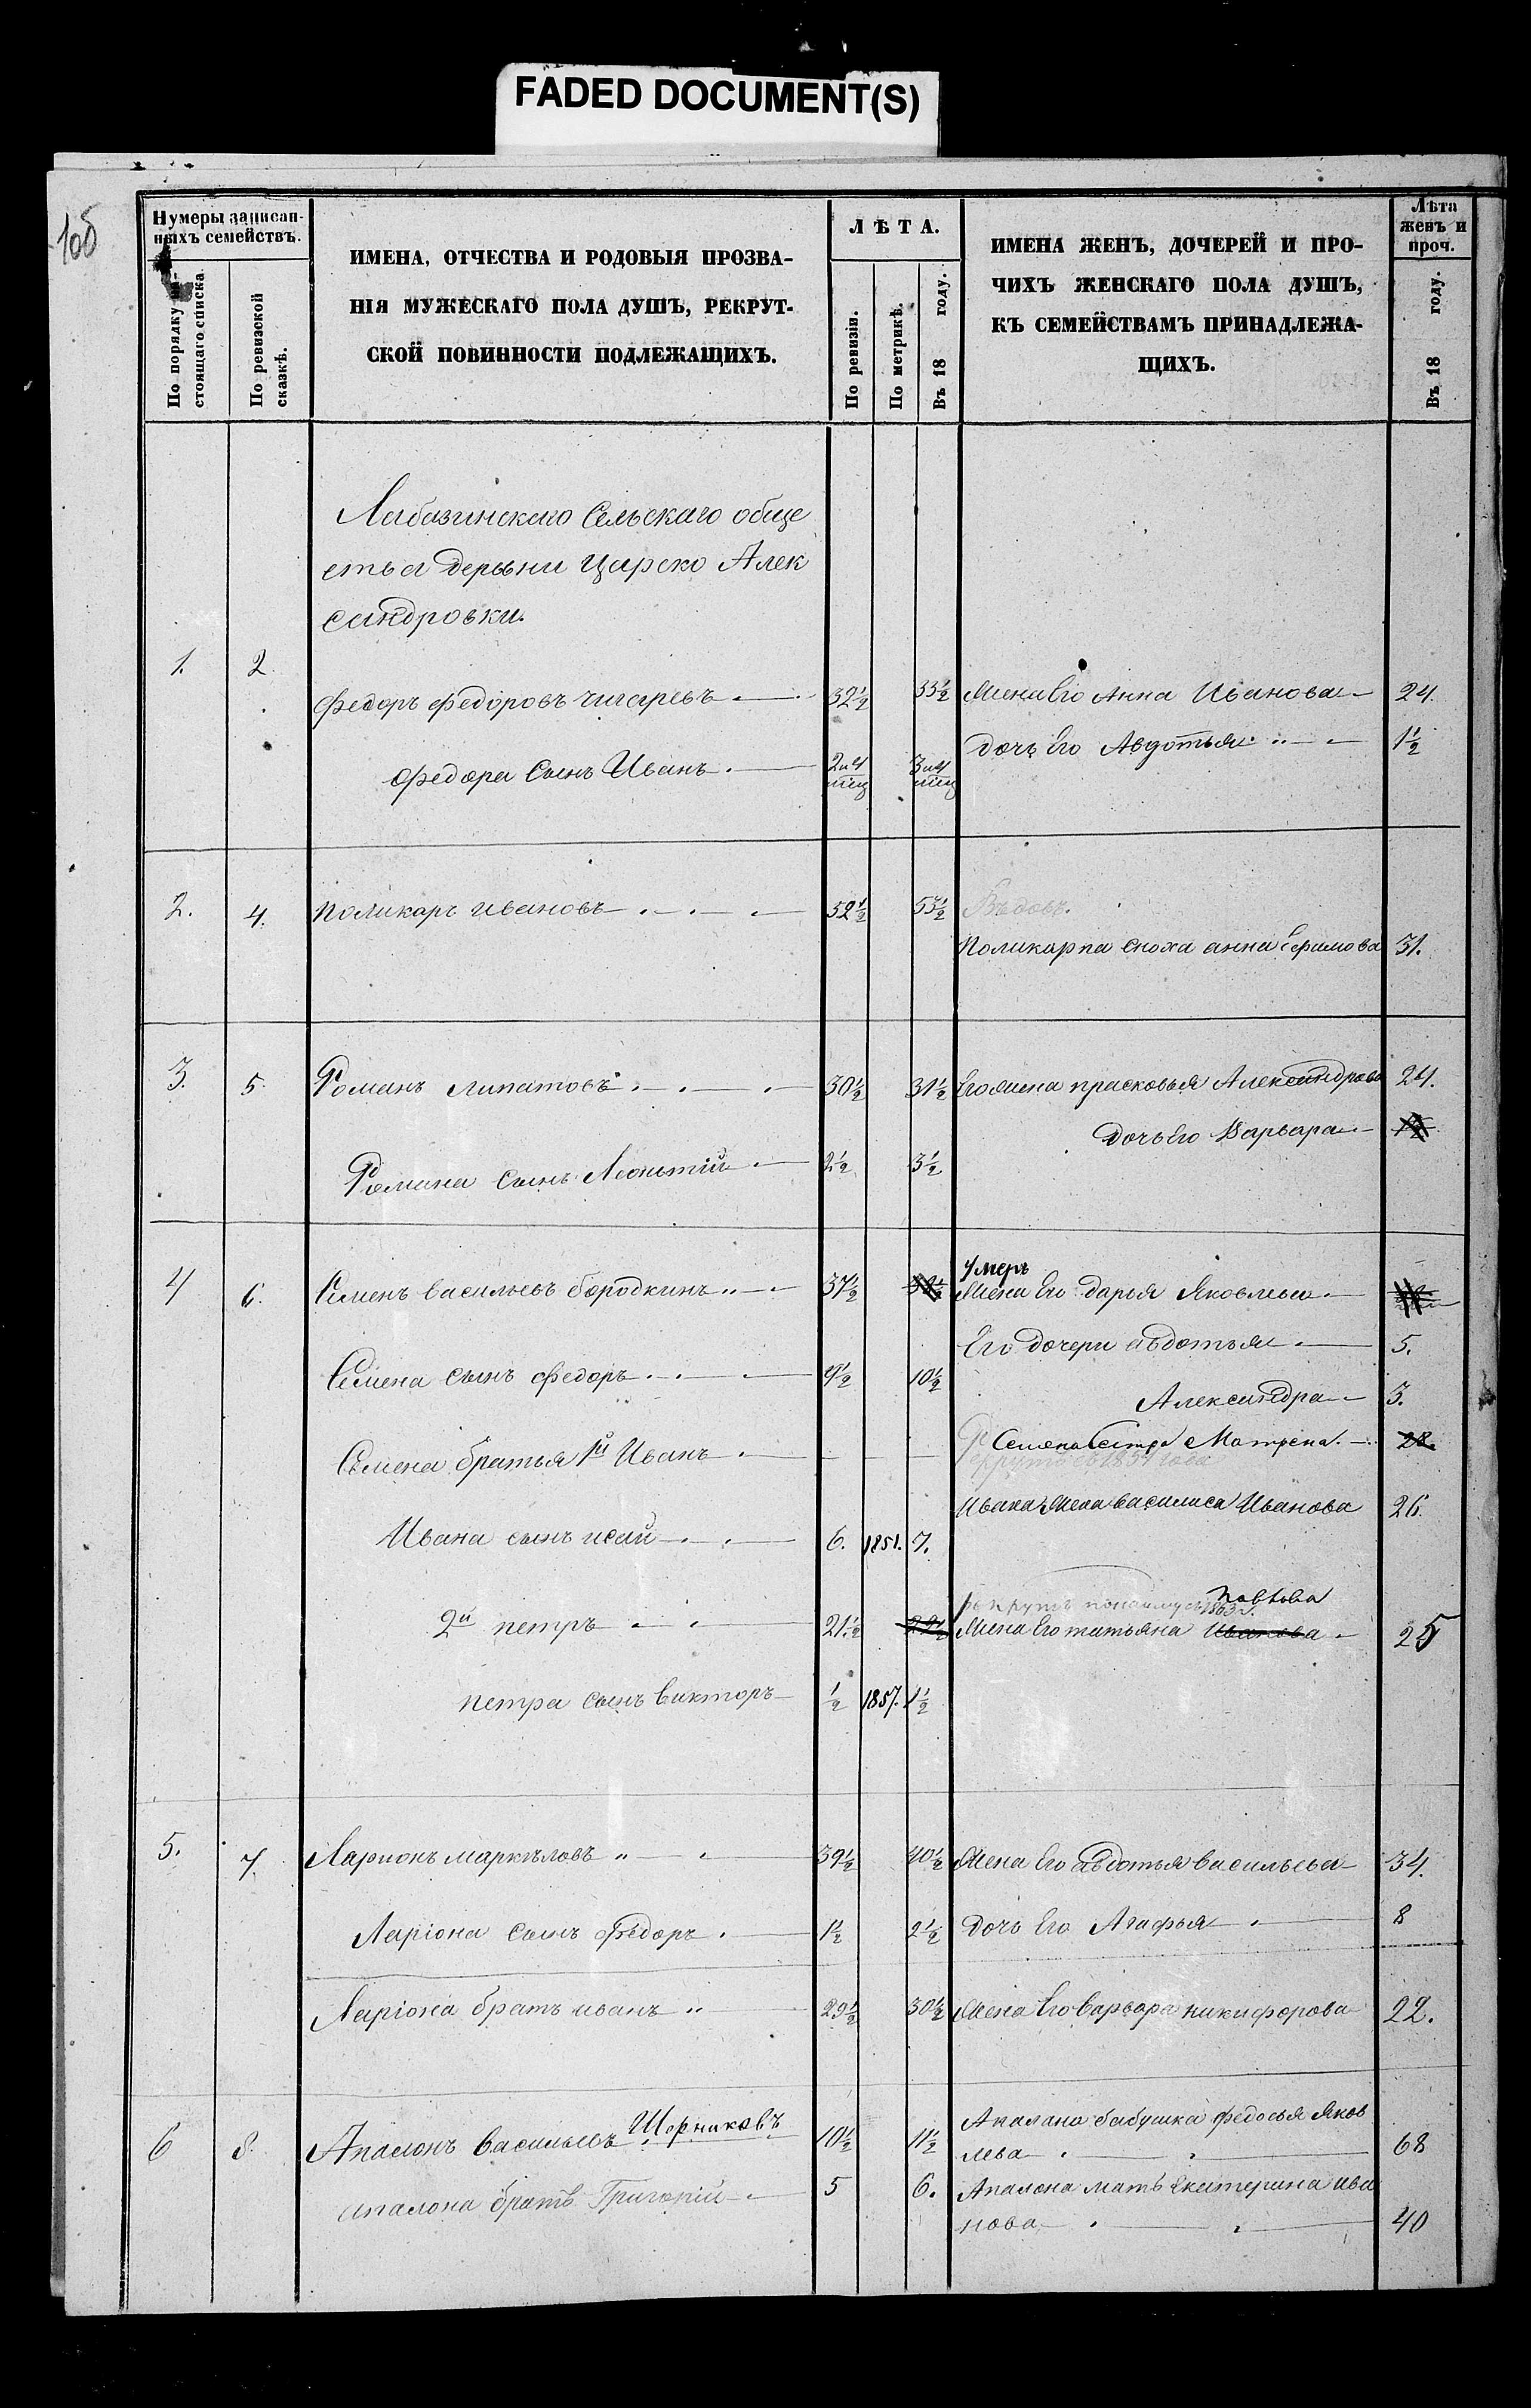 FADED DOCUMENT(S)
Нумеры записан-
ныхъ семействъ.
По порядку на-
стоящаго списка.
По ревизской
сказкѣ.
ИМЕНА, ОТЧЕСТВА И РОДОВЫЯ ПРОЗВА-
НІЯ МУЖЕСКАГО ПОЛА ДУШЪ, РЕКРУТ-
СКОЙ ПОВИННОСТИ ПОДЛЕЖАЩИХЪ.
ЛѢТА.
По ревизіи.
По метрикѣ.
Въ 18 году.
ИМЕНА ЖЕНЪ, ДОЧЕРЕЙ И ПРО-
ЧИХЪ ЖЕНСКАГО ПОЛА ДУШЪ,
КЪ СЕМЕЙСТВАМЪ ПРИНАДЛЕЖА-
ЩИХЪ.
Лѣта
женъ и
проч.
Въ 18 году.
Лабазинскаго Сельскаго обще
ства деревни Царско Алек
сандровки.
1. 2.
Федоръ Федоровъ Чигаревъ 32½ 33½ Жена Его Анна Иванова 24.
дочь Его Авдотья 1½
Федора Сынъ Иванъ 2 и 4 мец 3 и 4 мец
2. 4. Поликарпъ Ивановъ 52½ 53½ Вѣдовъ.
Поликарпа сноха анна Ефимова 31.
3. 5. Романъ Липатовъ 30½ 31½ Его жена прасковья Александрова 24.
дочь Его Варвара
Романа сынъ Леонтій 2½ 3½
Умеръ
4 6. Семенъ васильевъ бородкинъ 37½ 38½ Жена Его дарья Яковлева
Его дочери авдотья 5.
Семена сынъ Федоръ 9½ 10½
Александра 3.
Семена Сестра Матрена 28.
Семена братья 1й Иванъ
рекрутъ съ 1854 года
Ивана Жена василиса Иванова 26.
Ивана сынъ исай 6. 1851. 7.
рекрутъ 1863 г. Павлова
2й петръ 21½ 22½ Жена Его татьяна Иванова 25
петра сынъ викторъ ½ 1857. 1½
5. 7. Ларионъ маркѣловъ 39½ 40½ Жена Его авдотья васильева 34.
Ларіона сынъ Федоръ 1½ 2½ дочь Его Агафья 8
Ларіона братъ иванъ 29½ 30½ Жена Его варвара никифорова 22.
6 8. Апалонъ васильевъ Шорниковъ 10½ 11½ Апалана бабушка федосья Яков
лева 68
апалона братъ Григорій 5 6. Апалона мать Екатерина ива
нова 40